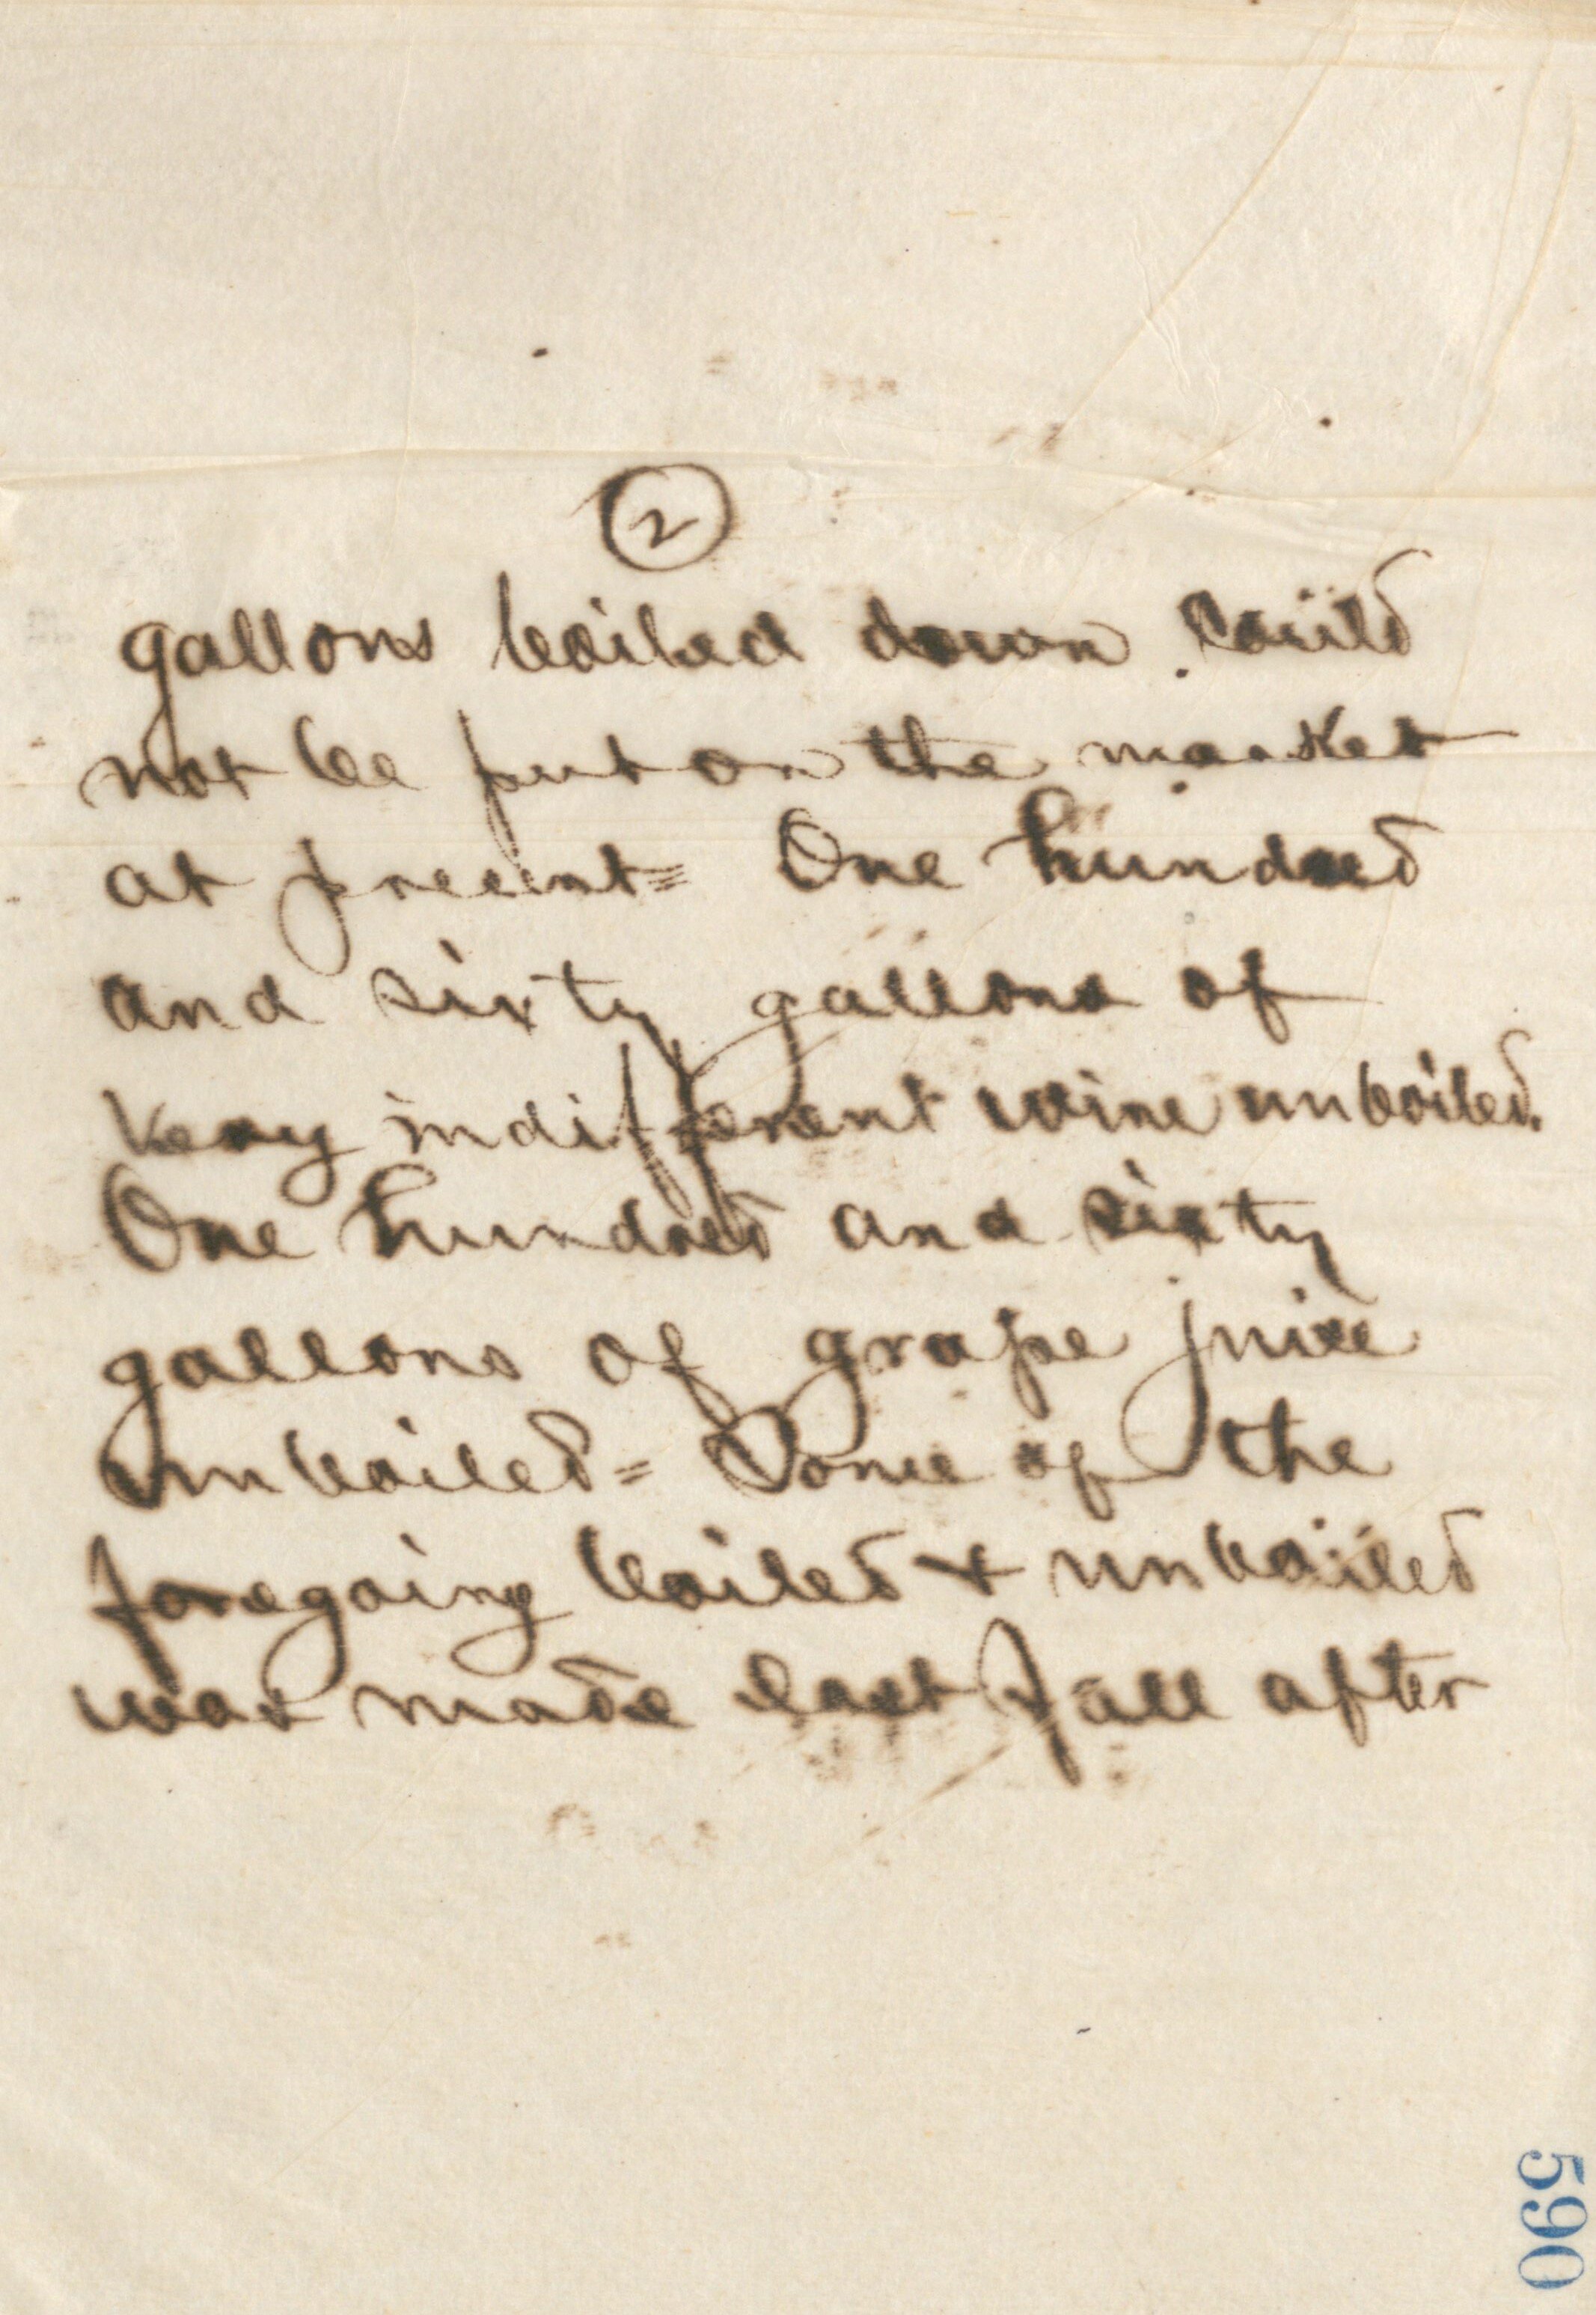 2
gallons boiled down could
not be put on the market
at present = One hundred
and sixty gallons of
very indifferent wine unboiled.
One hundred and sixty
gallons of grape juice
unboiled = Some of the
foregoing boiled + unboiled
was made last fall after
590